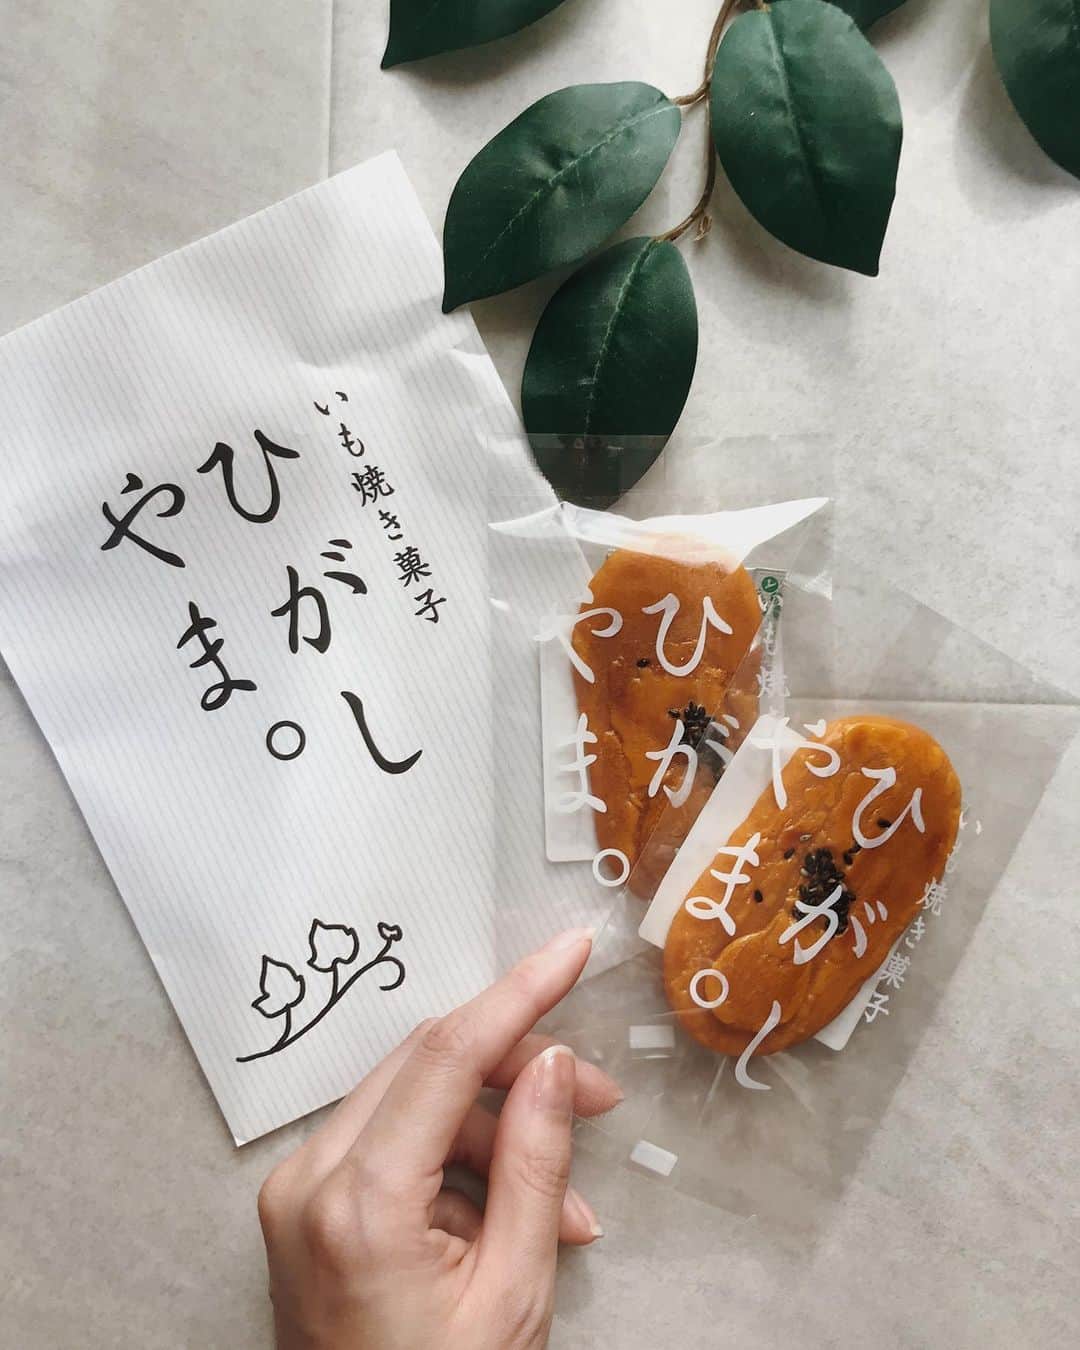 いも焼き菓子
ひがし
やま。
いも焼
ひが
やま。
いも焼き菓子
ひがし
やま。